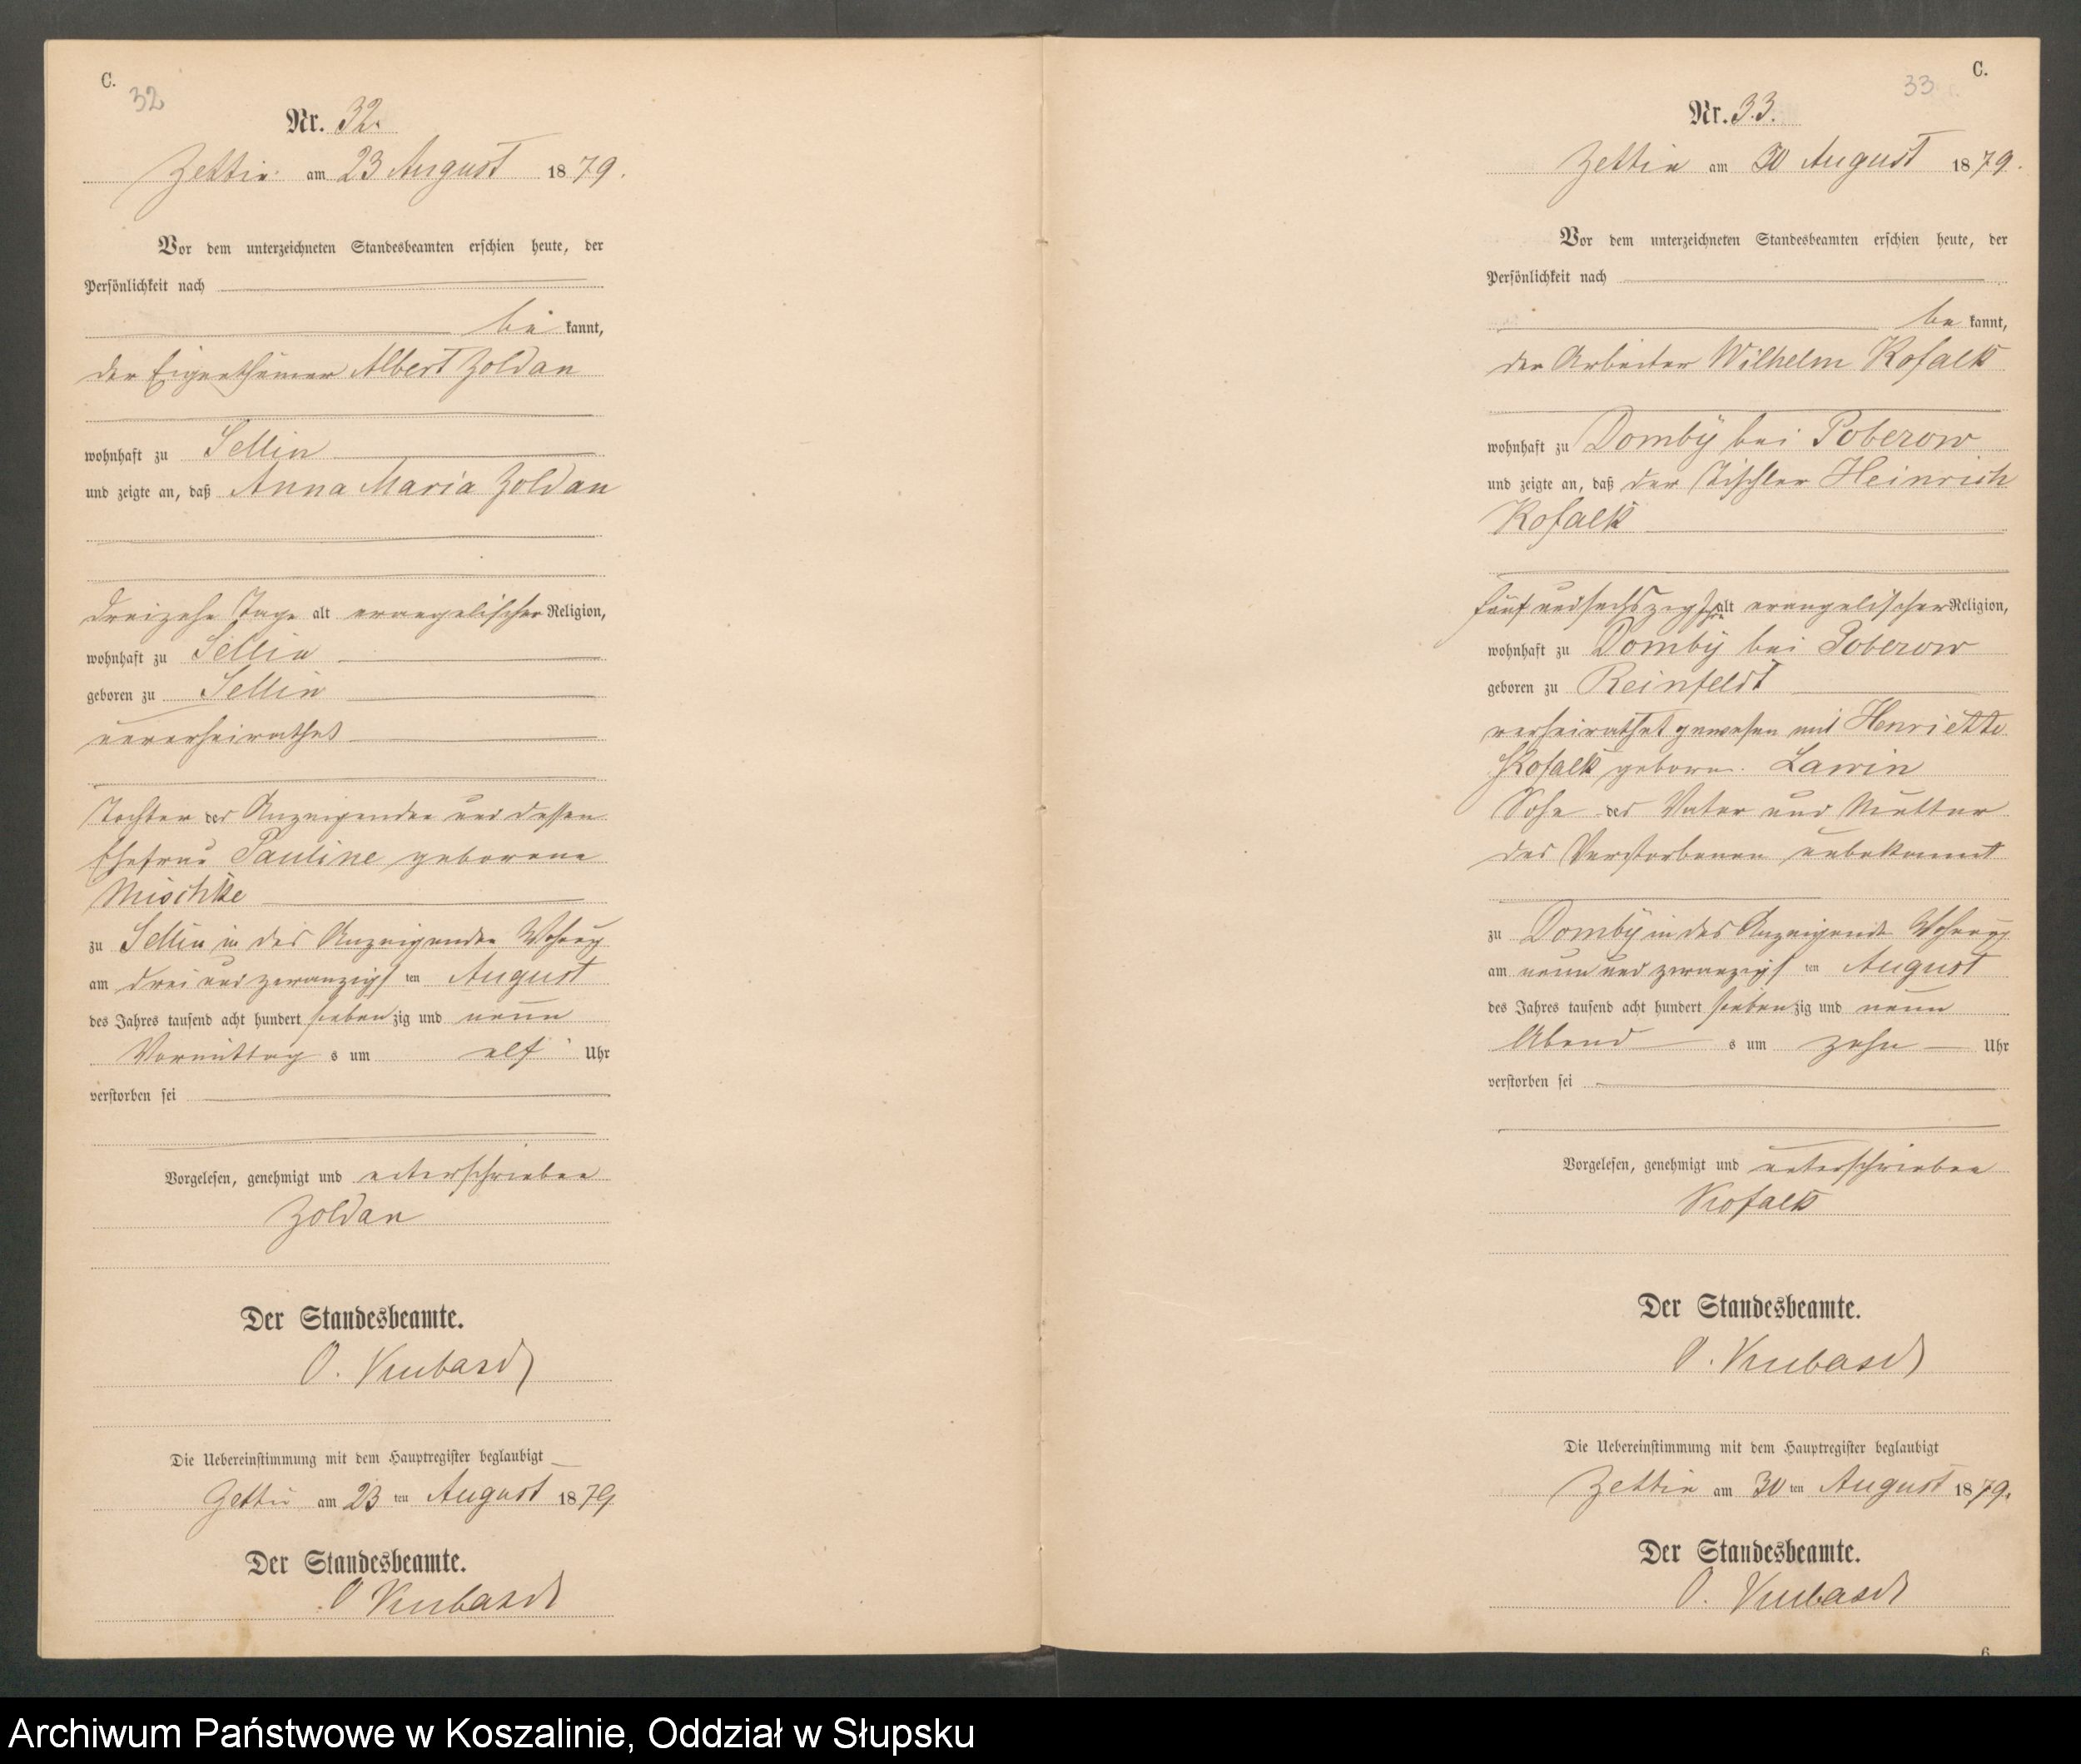 C.
32
Nr. 32.
Zettin am 23 August 1879.
Vor dem unterzeichneten Standesbeamten erschien heute, der
Persönlichkeit nach
be kannt,
der Eigenthümer Albert Zoldan
wohnhaft zu Sellin
und zeigte an, daß Anna Maria Zoldan
dreizehn Tage alt evangelischer Religion,
wohnhaft zu Sellin
geboren zu Sellin
unverheirathet
Tochter des Anzeigenden und dessen
Ehefrau Pauline geborene
Mischke
zu Sellin in des Anzeigenden Wohnung
am drei und zwanzigsten August
des Jahres tausend acht hundert siebenzig und neun
Vormittags um elf Uhr
verstorben sei
Vorgelesen, genehmigt und unterschrieben
Zoldan
Der Standesbeamte.
O.
Die Uebereinstimmung mit dem Hauptregister beglaubigt
Zettin am 23 ten August 1879
Der Standesbeamte.
O
C.
33
Nr. 33.
Zettin am 30 August 1879.
Vor dem unterzeichneten Standesbeamten erschien heute, der
Persönlichkeit nach
be kannt,
der Arbeiter Wilhelm Kofalk
wohnhaft zu Domby bei Poberow
und zeigte an, daß der Tischler Heinrich
Kofalk
fünf und sechszig Jahr alt evangelischer Religion,
wohnhaft zu Domby bei Poberow
geboren zu Reinfeldt
verheirathet gewesen mit Henriette
Kofalk geborne. Lawin
Sohn des Vater und Mutter
des Verstorbenen unbekannt
zu Domby in des Anzeigende Wohnung
am neun und zwanzigsten August
des Jahres tausend acht hundert siebenzig und neun
Abends um zehn Uhr
verstorben sei
Vorgelesen, genehmigt und unterschrieben
Kofalk
Der Standesbeamte.
O.
Die Uebereinstimmung mit dem Hauptregister beglaubigt
Zettin am 30 ten August 1879.
Der Standesbeamte.
O.
6
Archiwum Państwowe w Koszalinie, Oddział w Słupsku